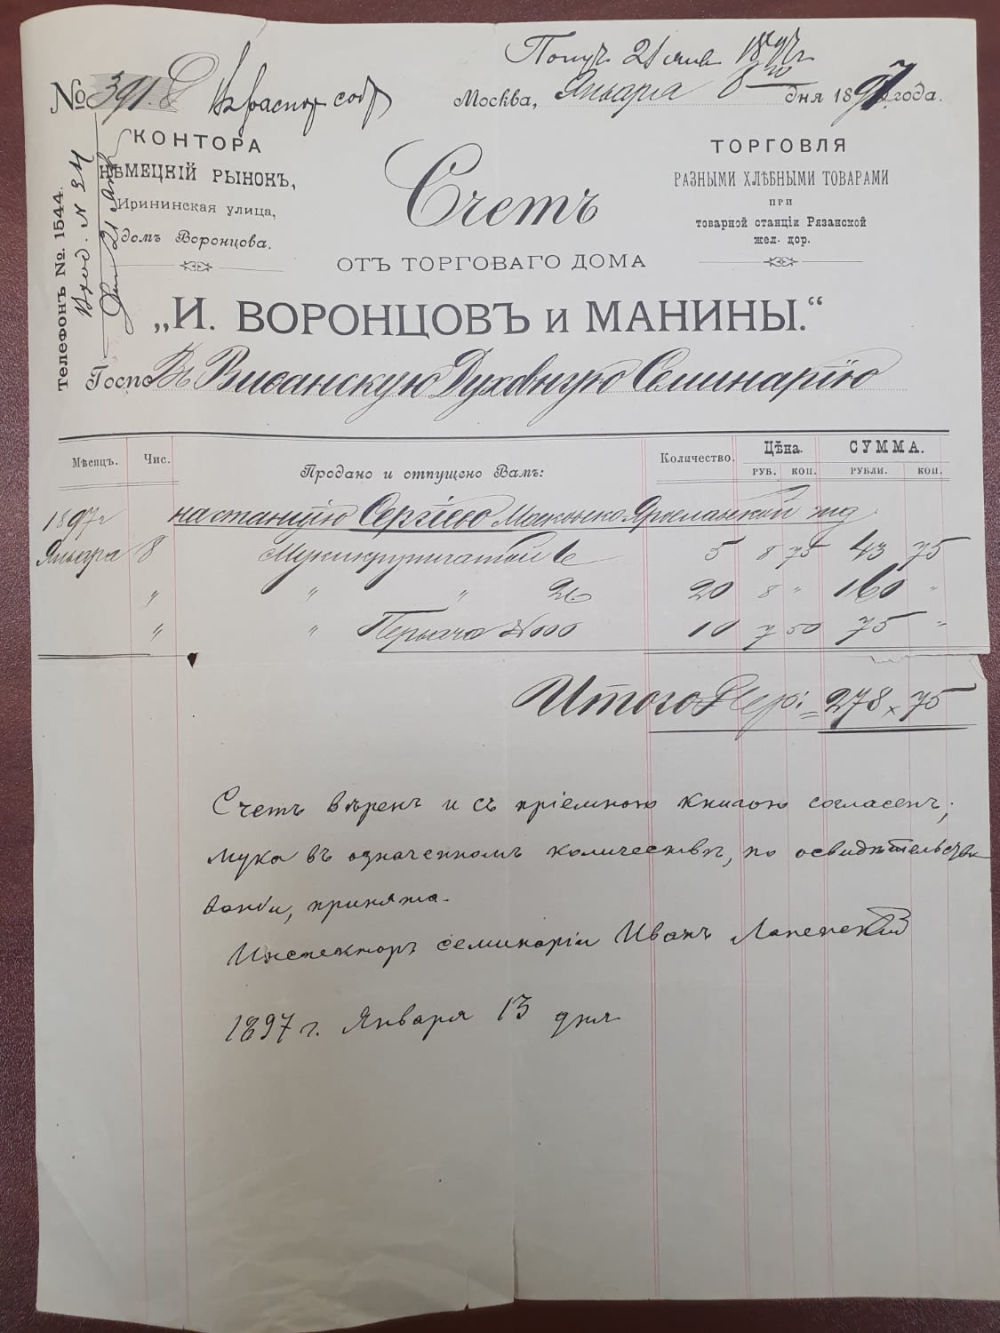 Получ. 21 янв. 1897 г.
№ 391.
Въ распор. собр.
Москва, Января 8го дня 1897 года.
КОНТОРА
НѢМЕЦКІЙ РЫНОКЪ,
Ирининская улица,
домъ Воронцова.
Телефонъ №. 1544.
Вход. № 24
21 Янв.
Счетъ
ТОРГОВЛЯ
РАЗНЫМИ ХЛѢБНЫМИ ТОВАРАМИ
ПРИ
товарной станціи Рязанской
жел. дор.
ОТЪ ТОРГОВАГО ДОМА
„И. ВОРОНЦОВЪ и МАНИНЫ.“
Госпо Въ Виѳанскую Духовную Семинарію
Мѣсяцъ. Чис. Продано и отпущено Вамъ: Количество. Цѣна. СУММА.
РУБ. КОП. РУБЛИ. КОП.
1897 г на станцію Сергіево Московско Ярославской жд
Января 8 Муки крупчатой 5 8 75 43 75
" " " 20 8 " 160 "
" " Перьваго 10 7 50 75 "
Итого Сер: = 278 × 75
Счетъ вѣренъ и съ пріемною книгою согласенъ;
мука въ означенномъ количествѣ, по освидѣтельство
ваніи, принята.
Инспекторъ семинаріи Иванъ
1897 г. Января 13 дня